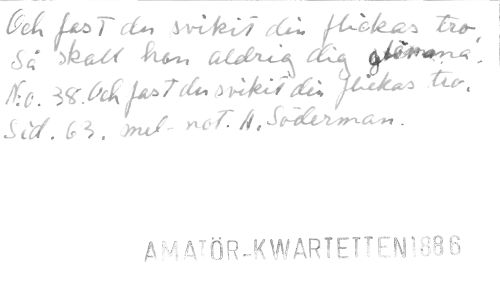 Och fast du svikit din flickas tro,
Så skall hon aldrig dig glömma.
N:o. 38. Och fast du svikit din flickas tro.
Sid. 63. mel- not. A. Söderman.
AMATÖR-KWARTETTEN 1886